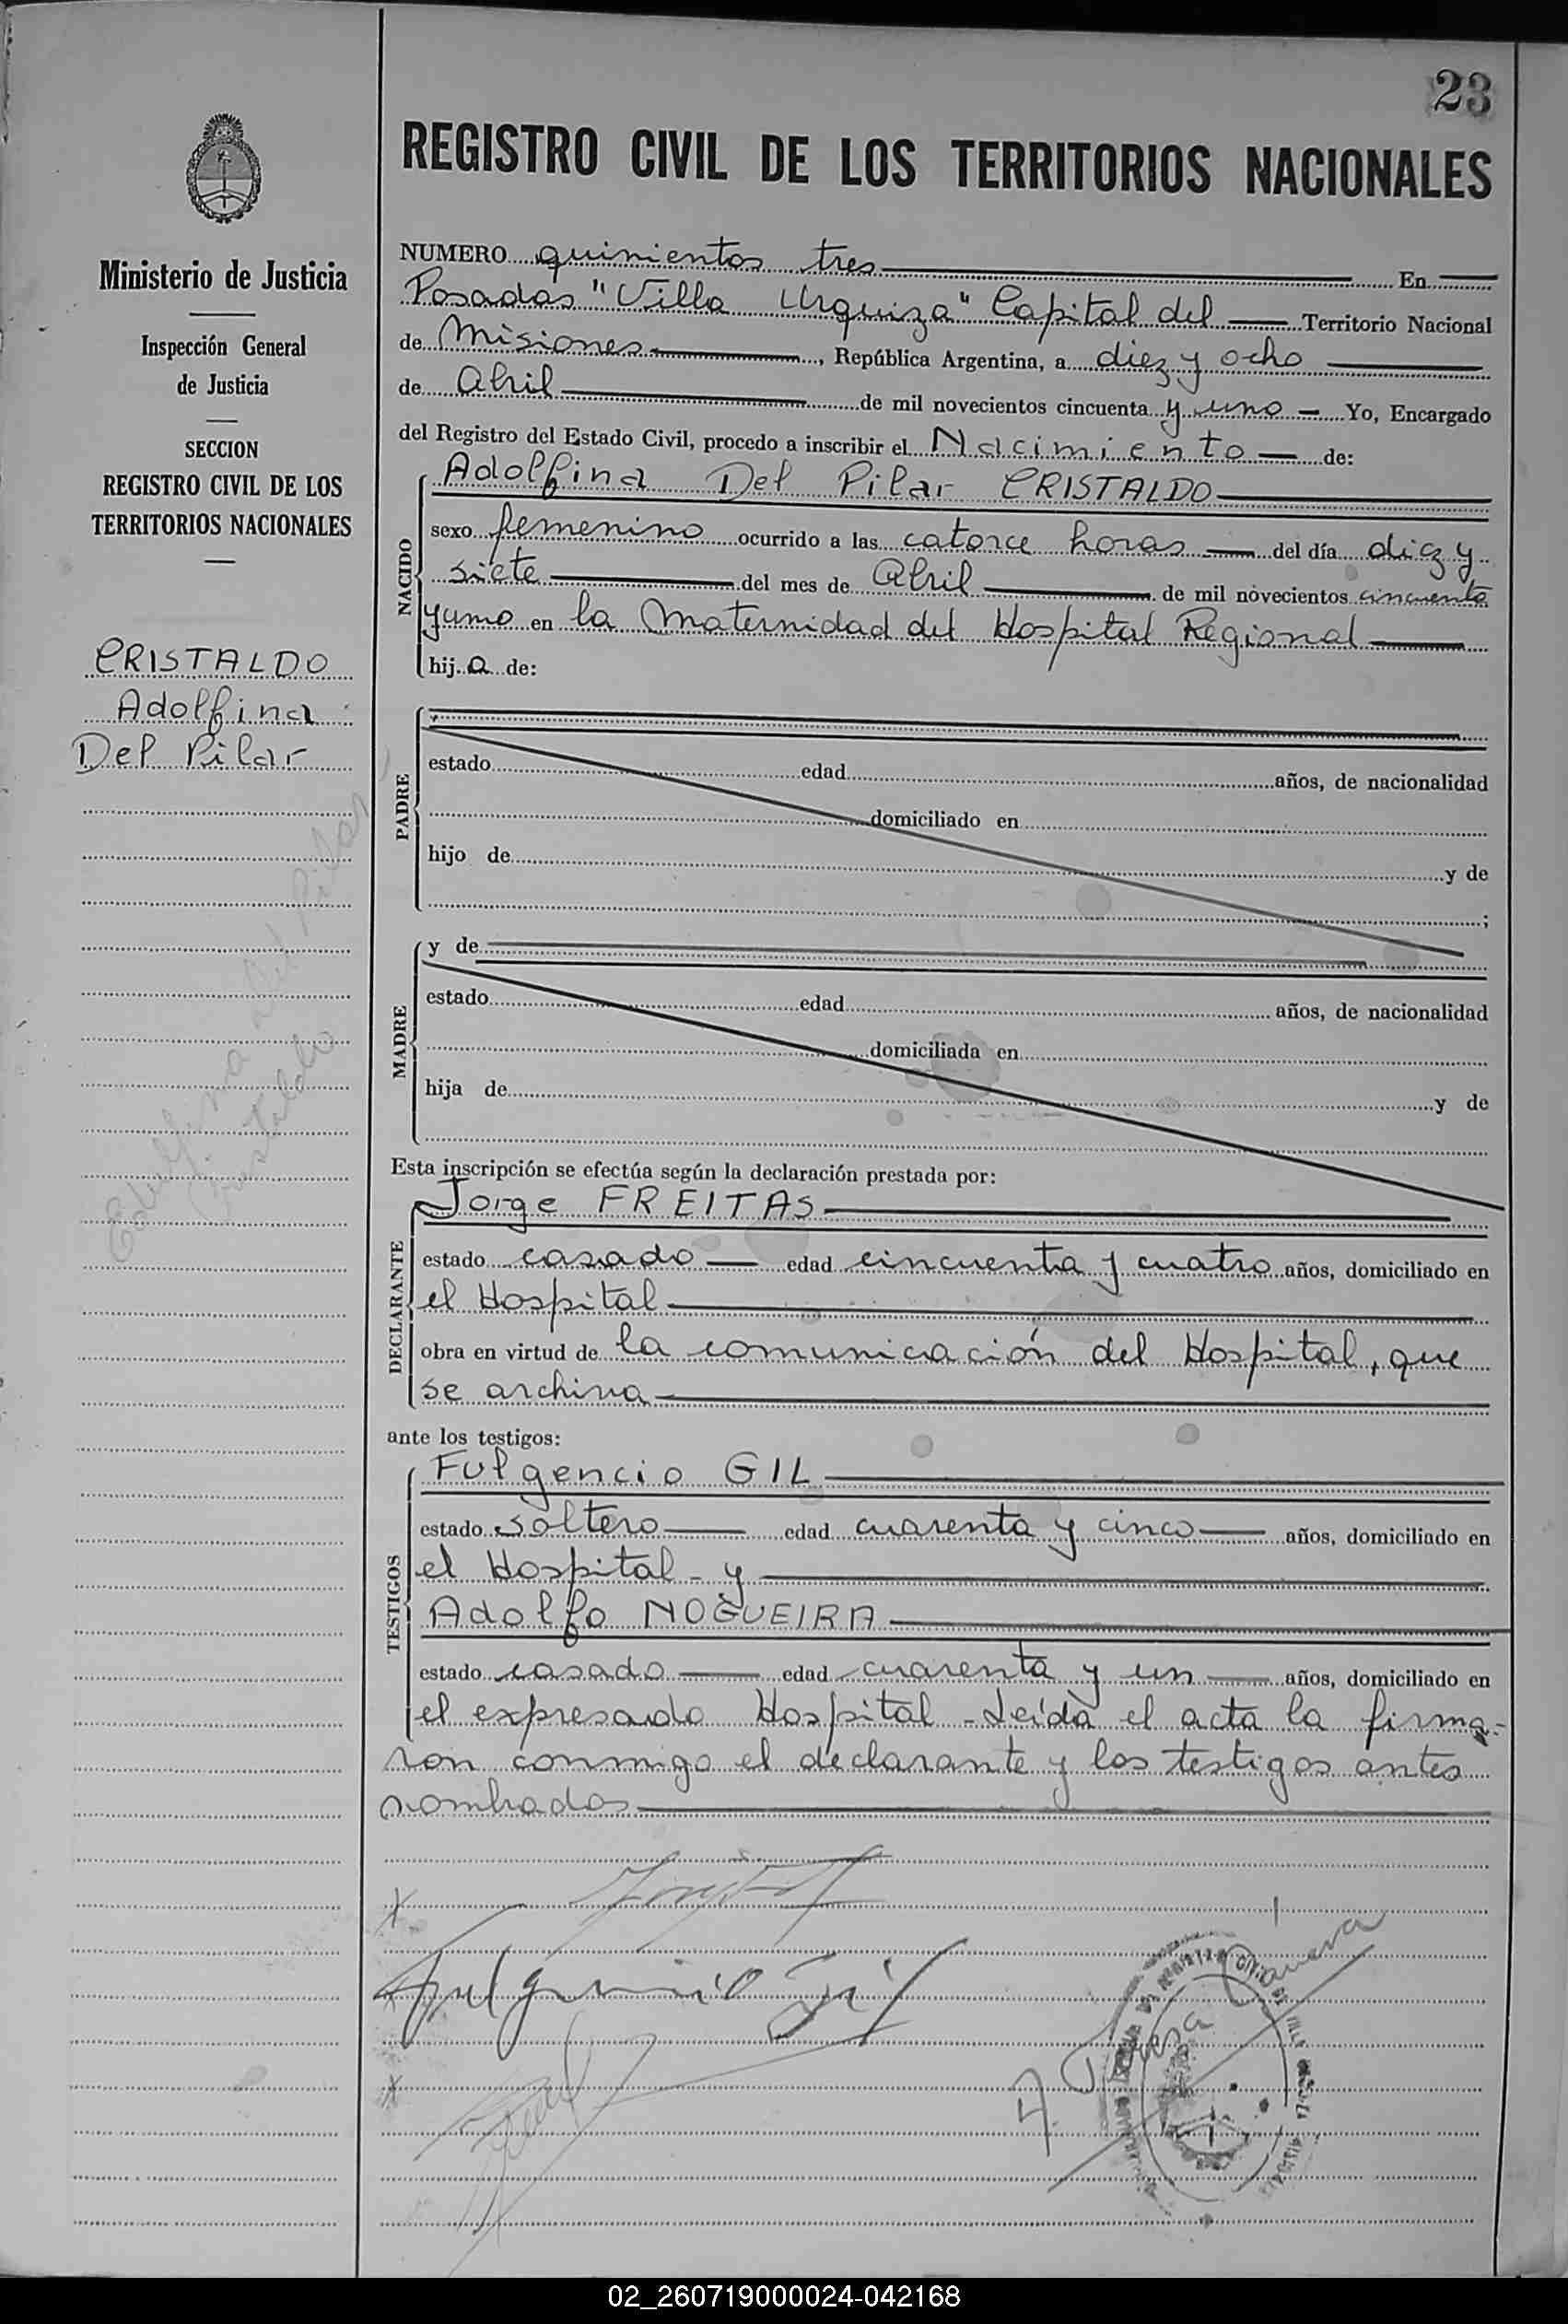 23
REGISTRO CIVIL DE LOS TERRITORIOS NACIONALES
Ministerio de Justicia
Inspección General
de Justicia
SECCION
REGISTRO CIVIL DE LOS
TERRITORIOS NACIONALES
CRISTALDO
Adolfina
Del Pilar
NUMERO quinientos tres En
Posadas "Villa Urquiza" Capital del Territorio Nacional
de Misiones, República Argentina, a diez y ocho
de Abril de mil novecientos cincuenta y uno Yo, Encargado
del Registro del Estado Civil, procedo a inscribir el Nacimiento de:
NACIDO
Adolfina Del Pilar CRISTALDO
sexo femenino ocurrido a las catorce horas del día diez y
siete del mes de Abril de mil novecientos cincuenta
y uno en la Maternidad del Hospital Regional
hija de:
PADRE
estado edad años, de nacionalidad
domiciliado en
hijo de y de
;
MADRE
y de
estado edad años, de nacionalidad
domiciliada en
hija de y de
Esta inscripción se efectúa según la declaración prestada por:
DECLARANTE
Jorge FREITAS
estado casado edad cincuenta y cuatro años, domiciliado en
el Hospital
obra en virtud de la comunicación del Hospital, que
se archiva
ante los testigos:
TESTIGOS
Fulgencio GIL
estado soltero edad cuarenta y cinco años, domiciliado en
el Hospital - y
Adolfo NOGUEIRA
estado casado edad cuarenta y un años, domiciliado en
el expresado Hospital - Leída el acta la firma-
ron conmigo el declarante y los testigos antes
nombrados
Fulgencio Gil
02_260719000024-042168